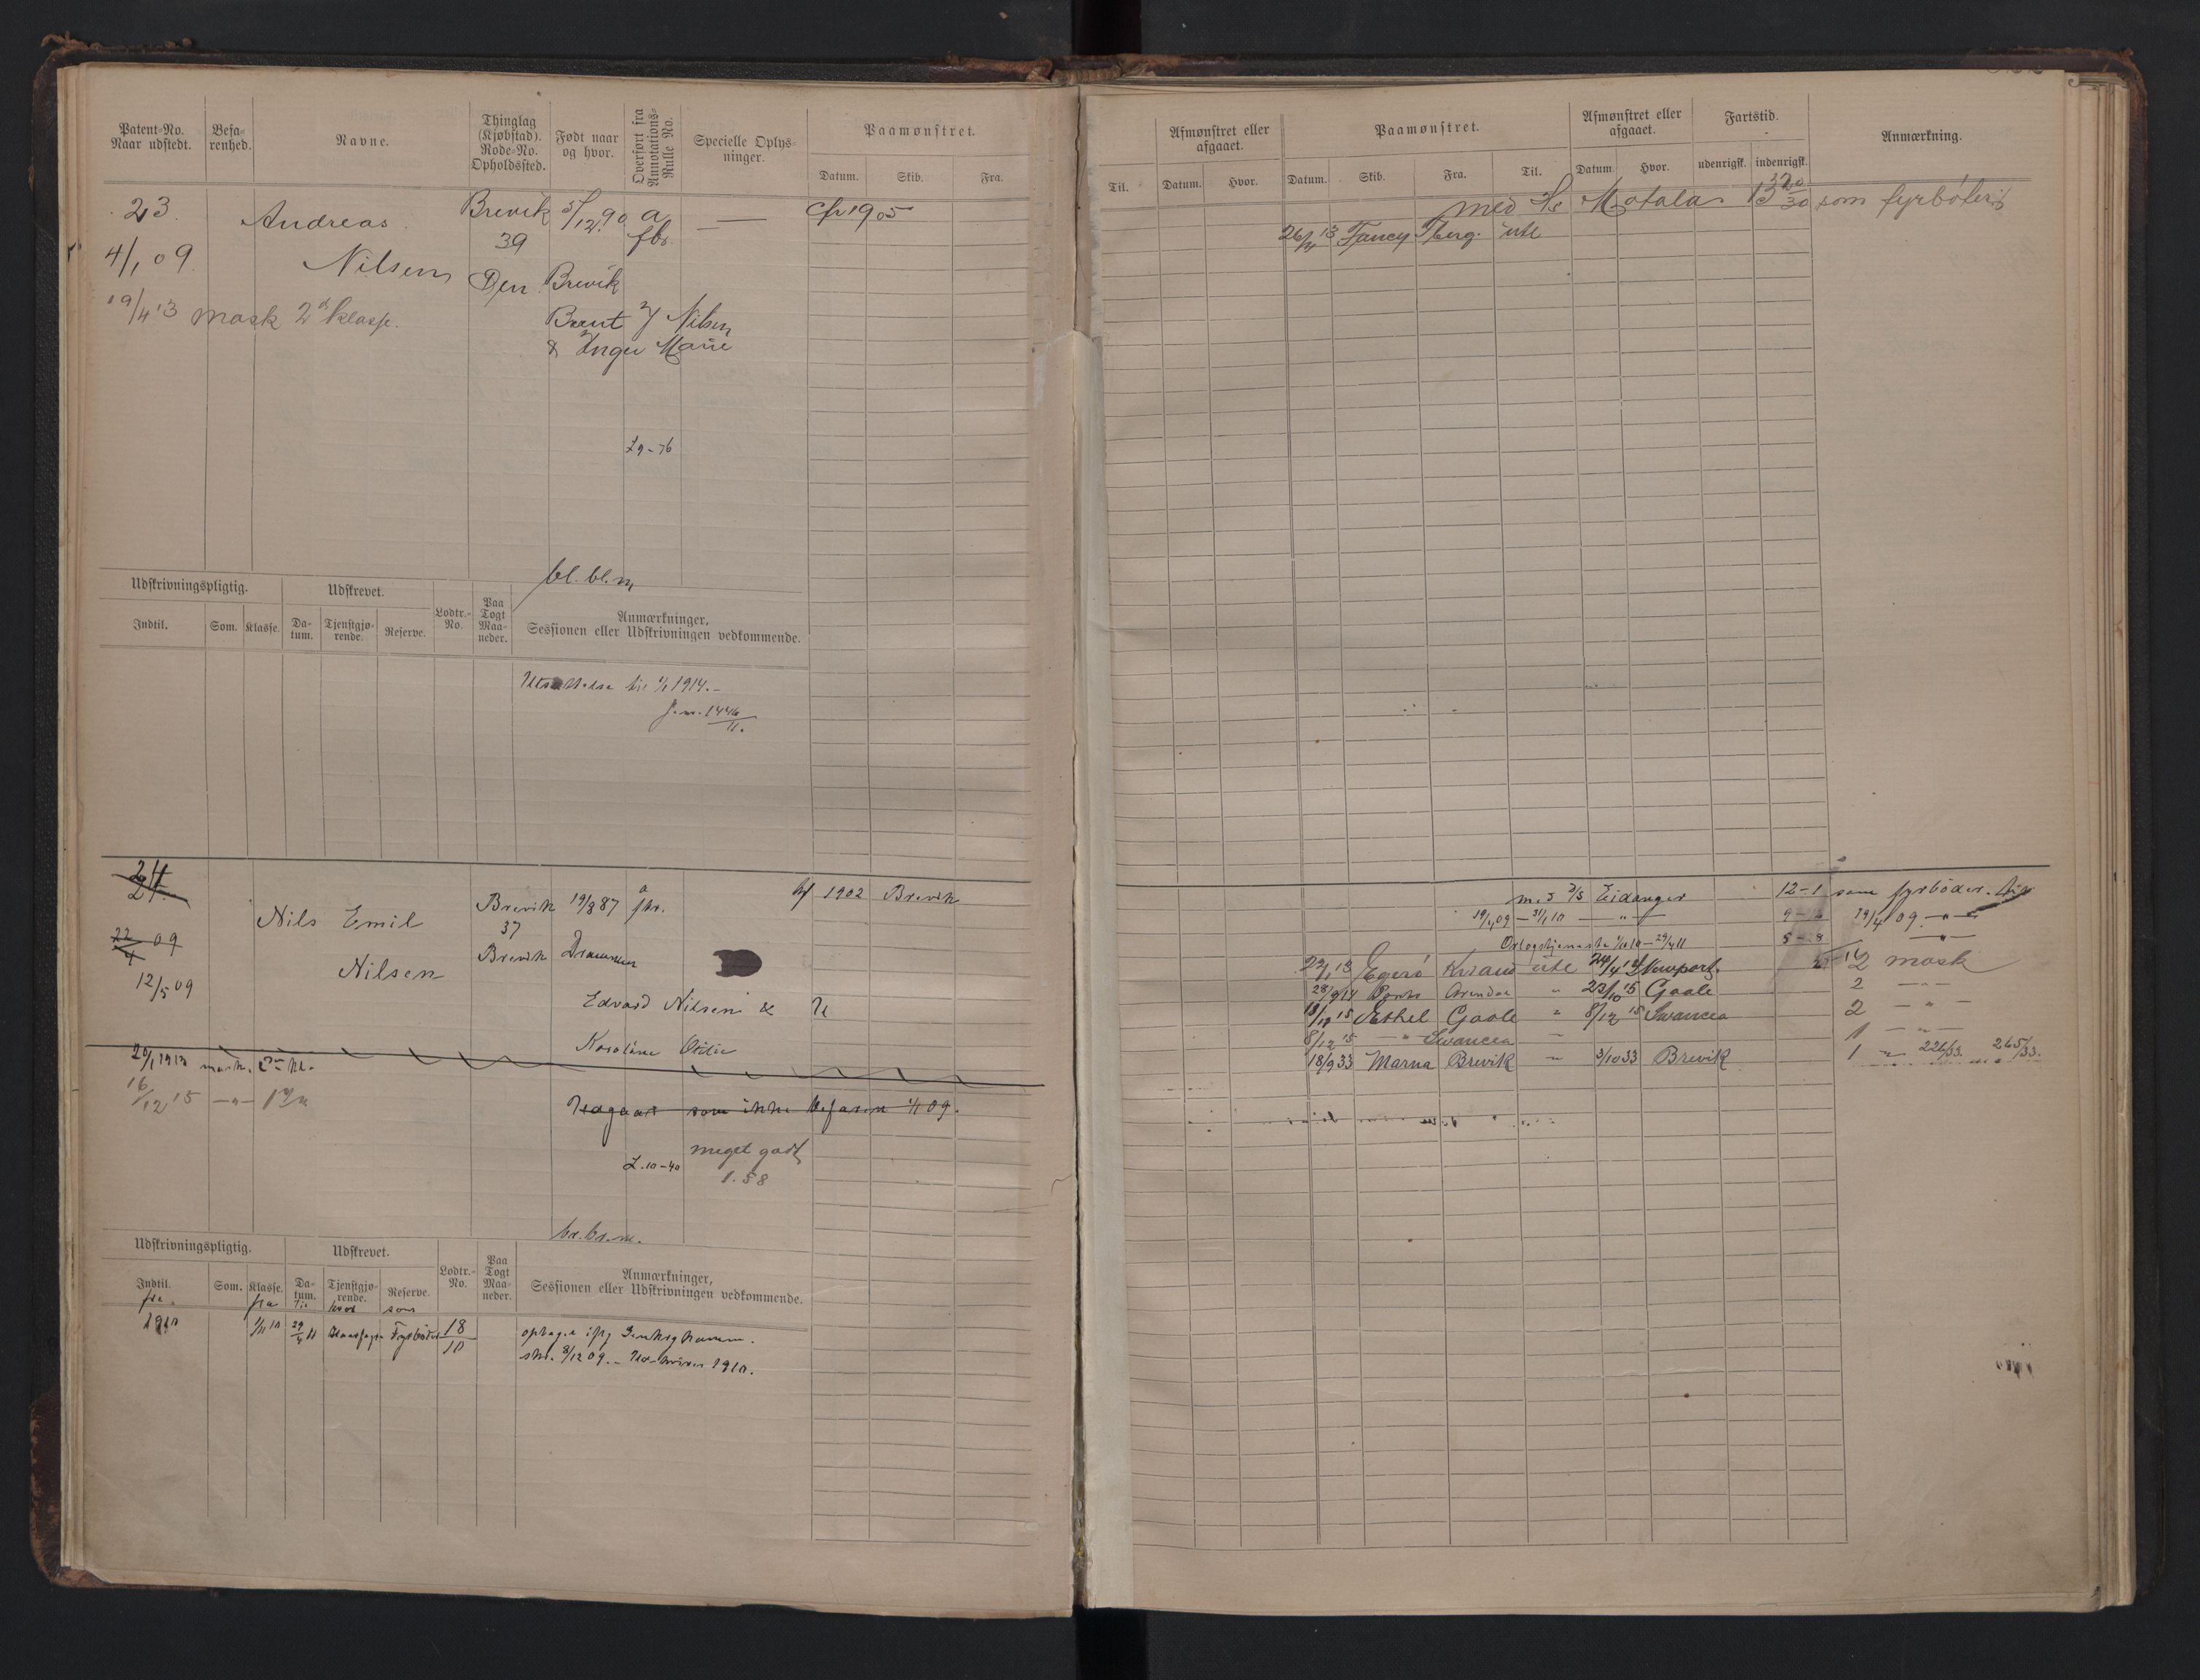 Patent-No. Naar udstedt.
Befarenhed.
Navne.
Thinglag (Kjøbstad). Rode-No. Opholdssted.
Født naar og hvor.
Overført fra Annotations-Rulle No.
Specielle Oplysninger.
Paamønstret.
Datum. Skib. Fra.
23. Andreas Brevik 5/12.90 a — cfr 1905
4/1 09 Nilsen 39 fbr. —
Den Brevik
19/4 13 mask 2d klasse.
Brent J Nilsen
& Inger Marie
L9-76
bl. bl. m
Udskrivningspligtig. Udskrevet. Lodtr.-No. Paa Togt Maaneder. Anmærkninger, Sessionen eller Udskrivningen vedkommende.
Indtil. Som. Klasse. Datum. Tjenstgjørende. Reserve.
Utsættelse til 1/1 1914.-
J.n. 1446/11.
24.
Nils Emil Brevik 19/8 87 a fbr. 1902 Brevik
22/4 09 37
Nilsen Brevik Drammen
12/5 09
Edvard Nilsen & U
Karoline Otilie
20/1 1913 mask. 2den kl.
16/12 15 —"— 1ste kl
Udgaar som ikke befaren 1/1 09.
L.10-40 meget godt
1.58
br. br. m.
Udskrivningspligtig. Udskrevet. Lodtr.-No. Paa Togt Maaneder. Anmærkninger, Sessionen eller Udskrivningen vedkommende.
Indtil. Som. Klasse. Datum. Tjenstgjørende. Reserve.
fra. fra til hvor som
1910 1/11 10 29/4 11 Fyrbøder 18/10
optaget ifлg
skr. 8/12 09. – Udskriven 1910.
Til.
Afmønstret eller afgaaet.
Datum. Hvor.
Paamønstret.
Datum. Skib. Fra. Til.
Afmønstret eller afgaaet.
Datum. Hvor.
Fartstid.
udenrigsk. indenrigsk.
Anmærkning.
med Ss Motala 13 20/30 som fyrbøter
26/4 13 Fancy Tberg. ute
med D/S Eidanger 12-1 som fyrbøder.
19/4 09 — 31/1 10 —"— 19/4 09 —"—
Orlogstjeneste 1/11 10 - 29/4 11 5-8 —"—
22/1 13 Egerø Krsand ute 24/4 14 Newport. 2 mask
28/9 14 Arendal " 23/10 15 Goole 2 —"—
18/11 15 Ethel Goole " 8/12 15 Swansea 2 —"—
8/12 15 —"— Swansea — 1 —"—
18/9 33 Marna Brevik " 3/10 33 Brevik 1 " 226/33. 265/33.